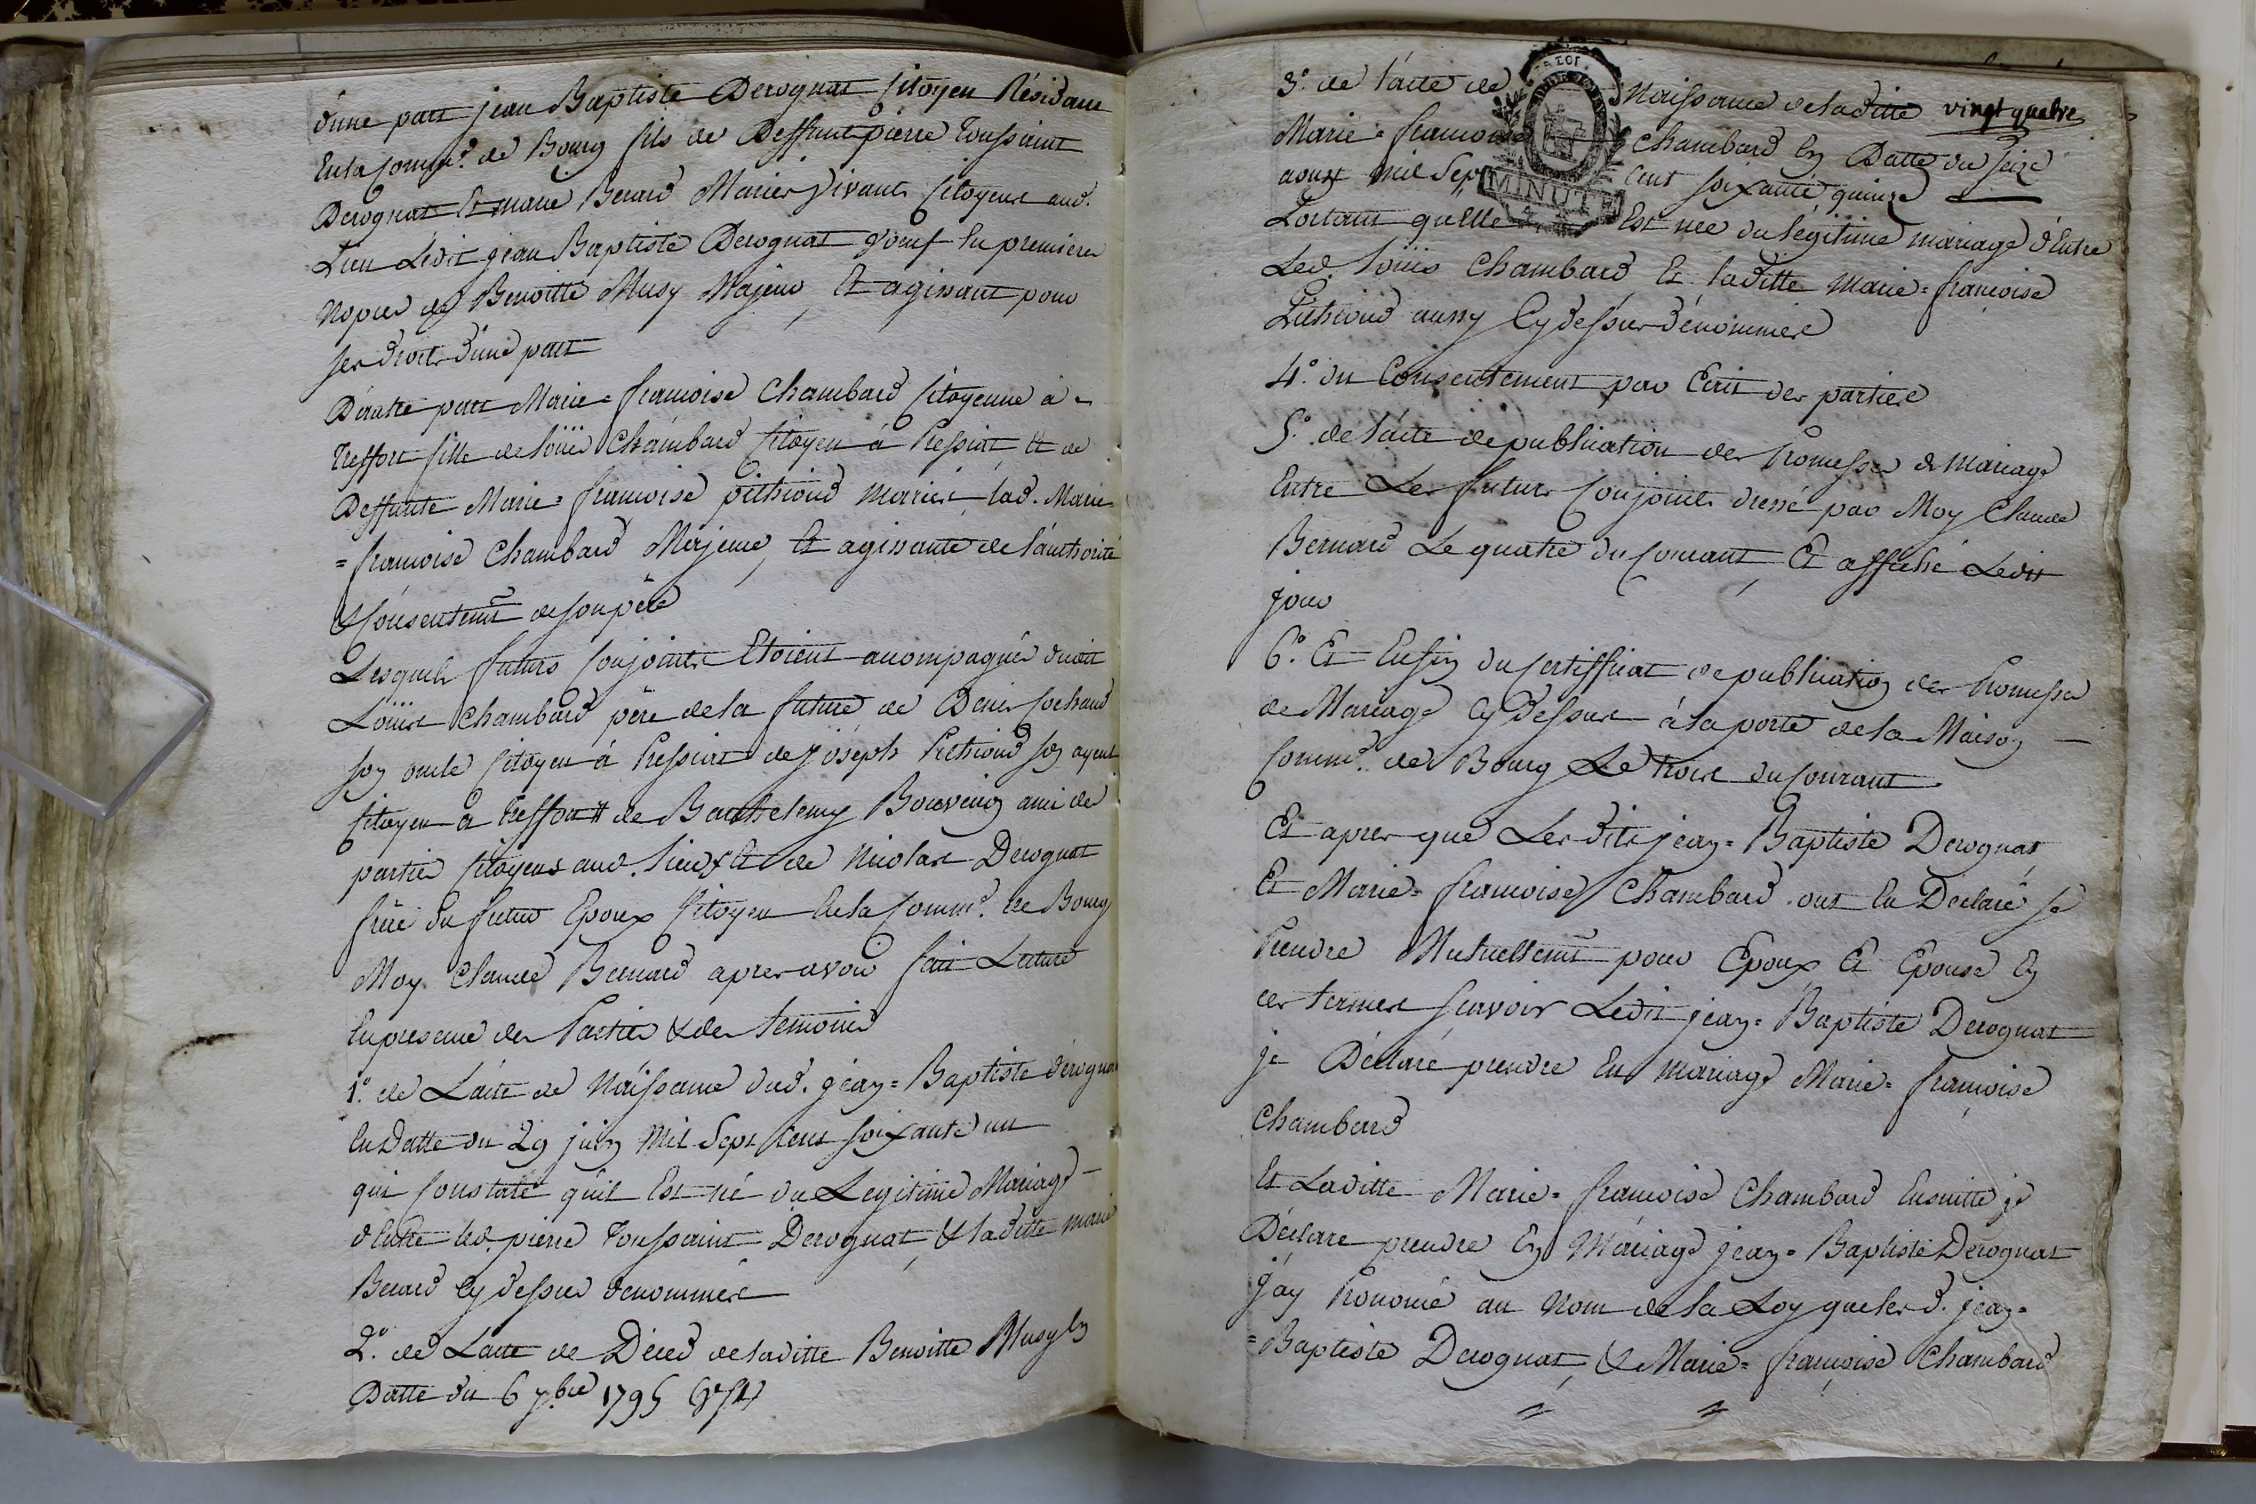 d'une part jean Baptiste Derognat Citoyen Résidant
En la Comm.e de Bourg fils de Deffunt pierre Toussaint
Derognat Et marie Berard Mariés vivants Citoyens aud.
Lieu Ledit jean Baptiste Derognat Voeuf En premieres
Nopces de Benoitte Musy Majeur, Et agissant pour
ses droits d'une part
D'autre part Marie=francoise Chambard Citoyenne à
Treffort fille de Loüis Chambard Citoyen à Pressiat Et de
Deffunte Marie=francoise pithioud mariés, lad. Marie
=francoise Chambard Majeure, Et agissante de l'authorité
& Consentemt de son père
Lesquels futurs Conjoints Etoient accompagnés dudit
Loüis Chambard père de la future, de Denis Cochaud
son oncle Citoyen à Pressiat de joseph Pithioud son ayeul
Citoyen à Treffort de Barthelemy Bouvencq ami des
parties Citoyens aud. Lieu & Et de Nicolas Derognat
frère du futur Epoux Citoyen de la Comm.e de Bourg
Moy Claude Bernard apres avoir fait Lecture
En presence des Parties & des temoins
1.o de L'acte de Naissance dud. jean=Baptiste derognat
En Datte du 29 juin Mil Sept Cent soixante un
qui Constate qu'il Est né du Legitime Mariage
d'Entre led. pierre Toussaint Derognat, & laditte marie
Berard Cy dessus dénommés
2.o de L'acte de Décès de laditte Benoitte Musy En
Datte du 6 7.bre 1795
vingt quatre
MINUTE
3.o de l'acte de Naissance de laditte
Marie=francoise Chambard En Datte du seize
aoust Mil Sept Cent soixante quinze
Portant qu'Elle Est née du légitime mariage d'Entre
Led. Loüis Chambard Et laditte Marie=francoise
Pithioud aussy Cy dessus dénommés
4.o du Consentement par Ecrit des parties
5.o de l'acte de publication des Promesses de Mariage
Entre Les futurs Conjoints dressé par Moy Claude
Bernard Le quatre du Courant, Et affiché Ledit
jour
6.o Et Enfin du Certifficat de publication des Promesses
de Mariage Cy dessus à la porte de la Maison
Comm.e de Bourg Le trois du Courant
Et apres que Les dits jean=Baptiste Derognat,
Et Marie=francoise Chambard ont Eu Declaré se
Prendre Mutuellemt pour Epoux Et Epouse En
ces termes sçavoir Ledit jean=Baptiste Derognat
je Déclare prendre En mariage Marie=françoise
Chambard
Et Laditte Marie=francoise Chambard Ensuitte je
Déclare prendre En Mariage jean=Baptiste Derognat
J'ay Prononcé au Nom de la Loy que les d. jean=
=Baptiste Derognat, & Marie=françoise Chambard